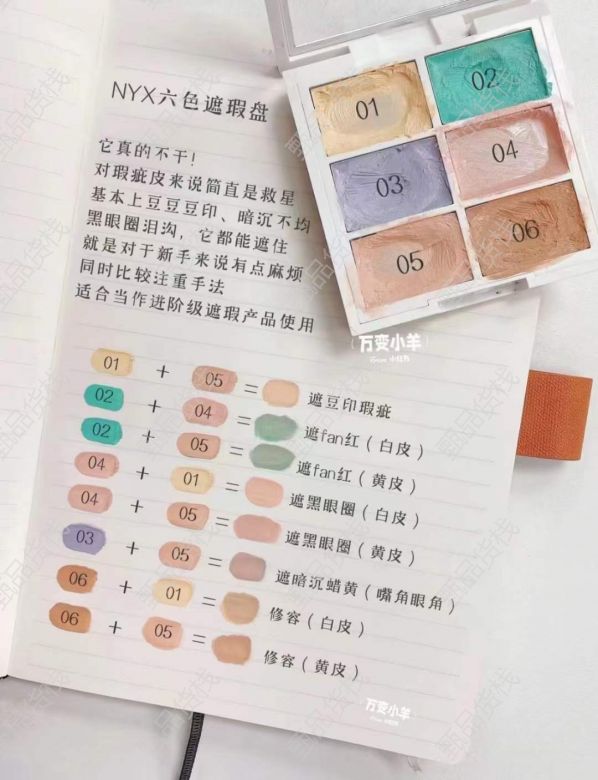 NYX六色遮瑕盘
它真的不干!
对瑕疵皮来说简直是救星
基本上豆豆豆印、暗沉不均
黑眼圈泪沟，它都能遮住
就是对于新手来说有点麻烦
同时比较注重手法
适合当作进阶级遮瑕产品使用
01
02
03
04
05
06
万变小羊
01 + 05 = 遮豆印瑕疵
02 + 04 = 遮fan红（白皮）
02 + 05 = 遮fan红（黄皮）
04 + 01 = 遮黑眼圈（白皮）
04 + 05 = 遮黑眼圈（黄皮）
03 + 05 = 遮暗沉蜡黄（嘴角眼角）
06 + 01 = 修容（白皮）
06 + 05 = 修容（黄皮）
万变小羊
甄品货栈